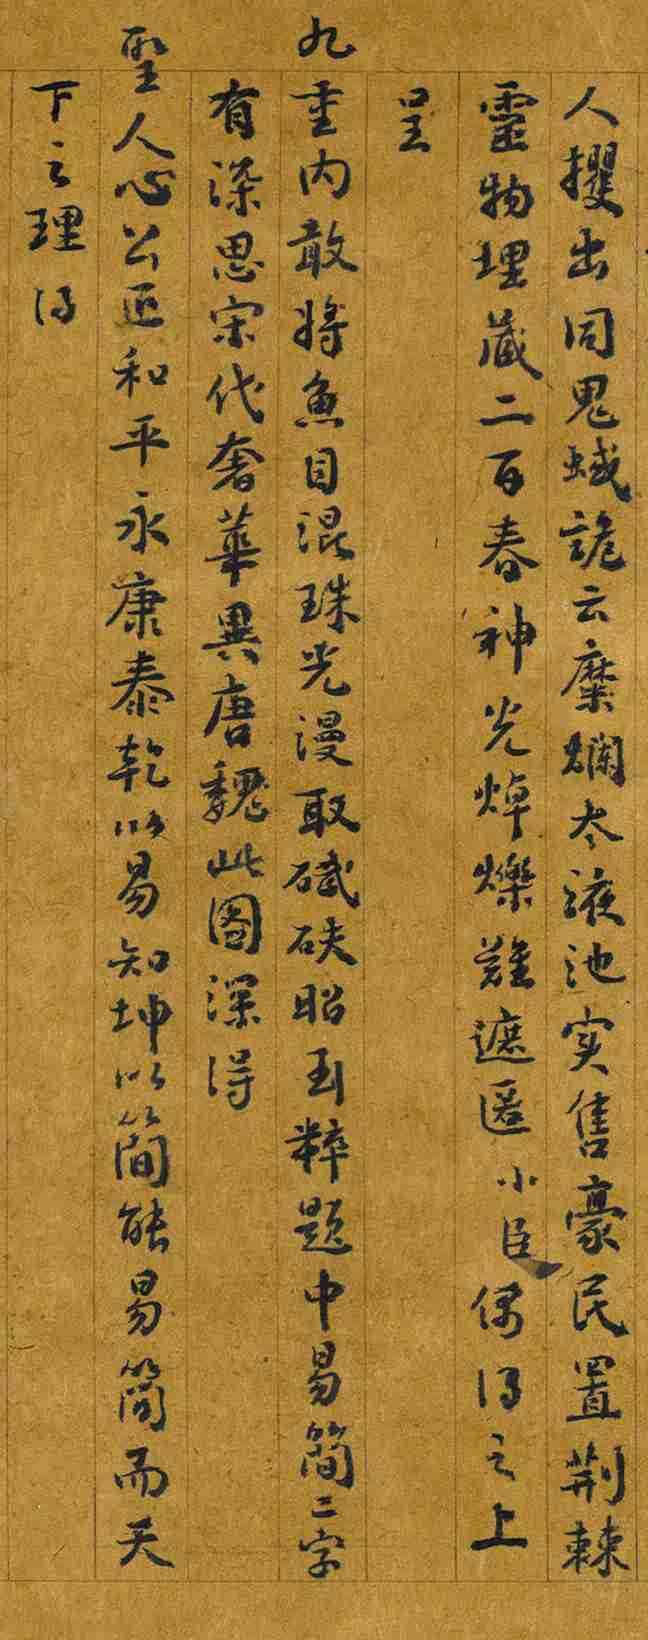 人攫出同鬼蜮詭云糜爛太液池实售豪民置荆棘
靈物埋藏二百春神光焯爍難遮匿小臣偶得之上
呈
九重内敢將魚目混珠光漫取碔砆昭玉粹題中易簡二字
有深思宋代奢華異唐魏此圖深得
聖人心公正和平永康泰乾以易知坤以簡能易簡而天
下之理得